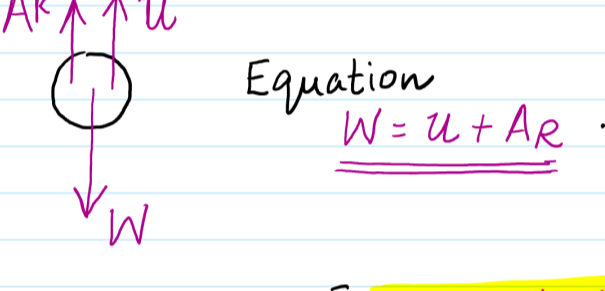 AR U
Equation
W = U + AR
W